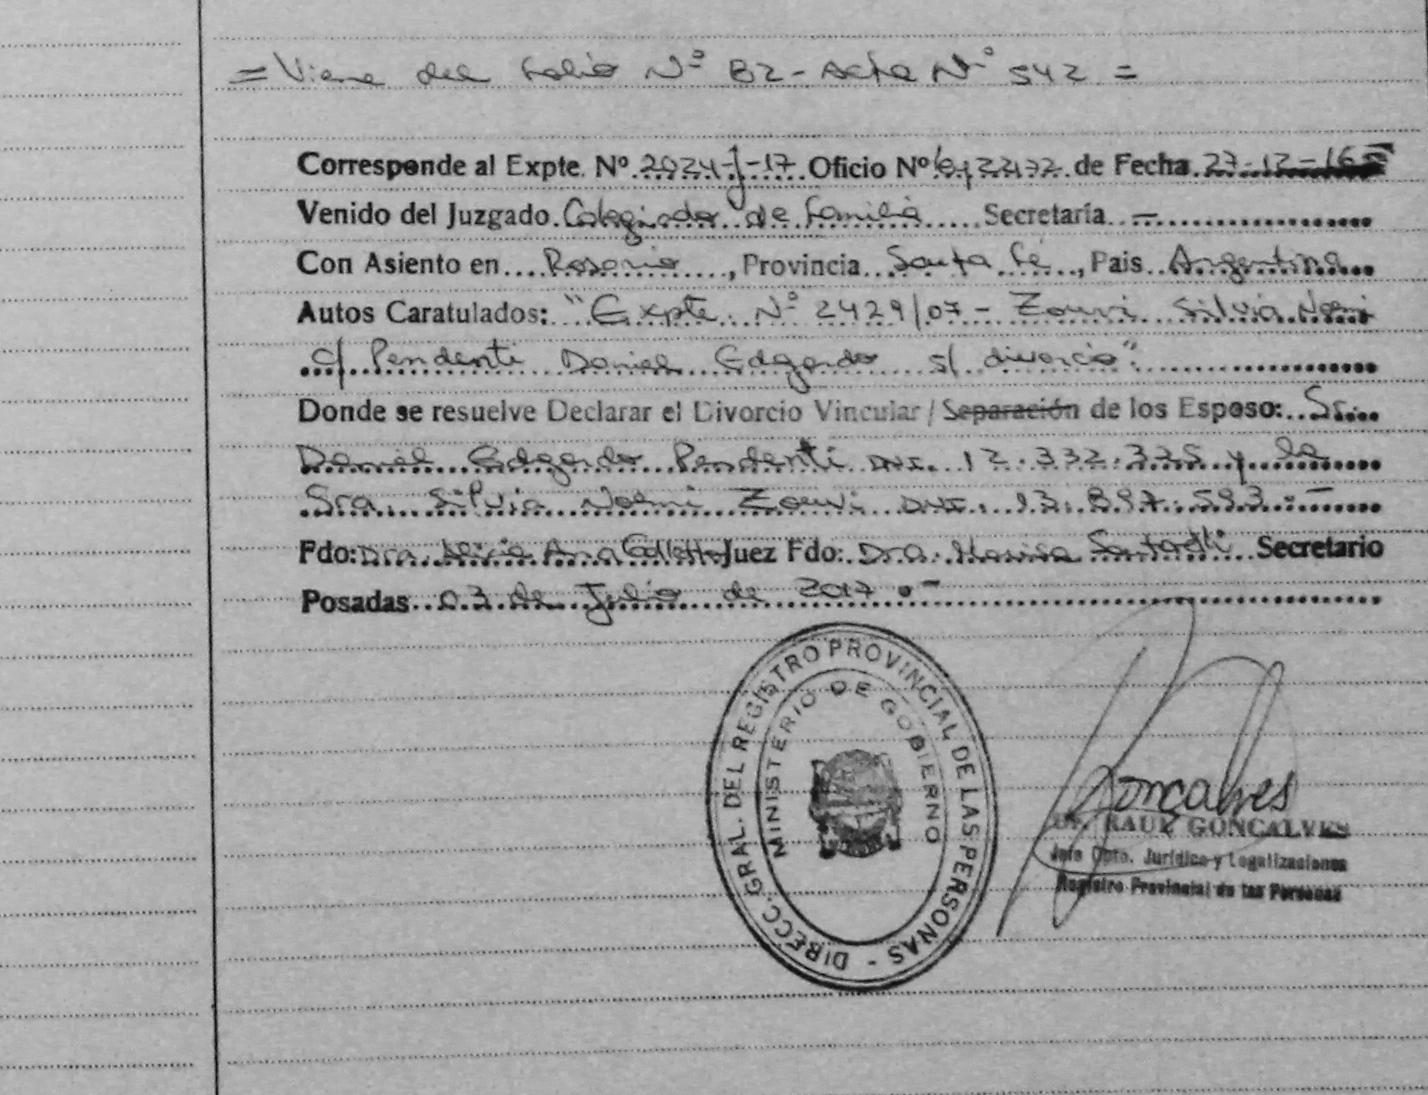 = Viene del folio Nº 82 - Acta Nº 542 =
Corresponde al Expte. Nº 2024-J-17 Oficio Nº de Fecha 27-12-16
Venido del Juzgado Colegiado de Familia Secretaría —
Con Asiento en Rosario, Provincia Santa Fé, Pais Argentina
Autos Caratulados: "Expte. Nº 2429/07 - Zouvi Silvia Noemi
c/ Pendenti Daniel Edgardo s/ divorcio".
Donde se resuelve Declarar el Divorcio Vincular / Separación de los Esposo: Sr.
Daniel Edgardo Pendenti DNI. 12.332.335 y la
Sra. Silvia Noemi Zouvi DNI. 13.897.593.-
Fdo: Dra. Ana Juez Fdo: Dra. Marisa Secretario
Posadas 03 de Julio de 2017.-
DIRECC. GRAL. DEL REGISTRO PROVINCIAL DE LAS PERSONAS -
MINISTERIO DE GOBIERNO
Gonçalves
Dr. RAUL GONÇALVES
Jefe Dpto. Jurídico y Legalizaciones
Registro Provincial de las Personas